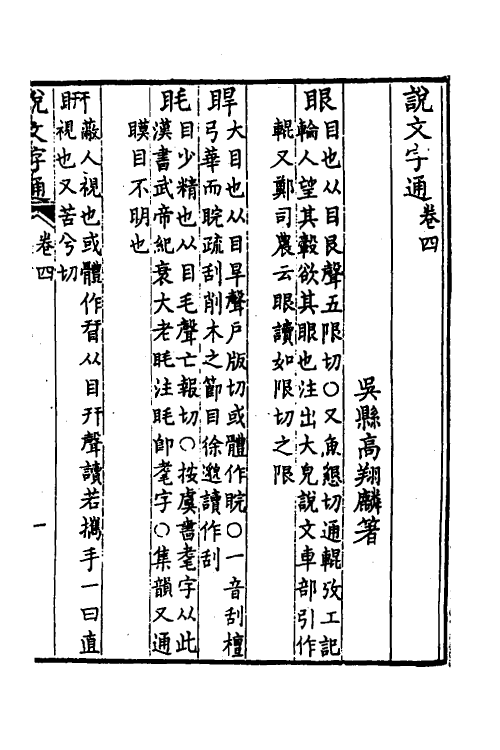 說文字通 卷四
吳縣高翔麟箸
眼目也从目㫔聲五限切○又魚懇切通輥攷工記
輪人望其轂欲其眼也注出大皃說文車部引作
輥又鄭司農云眼讀如限切之限
睅大目也从目旱聲戶版切或體作睆○一音刮檀
弓華而睆疏刮削木之節目徐邈讀作刮
眊目少精也从目毛聲亡報切○按虞書耄字从此
漢書武帝紀哀夫老眊注眊卽耄字○集韻又通
瞙目不明也
䀎蔽人視也或體作䀏从目幵聲讀若攜手一曰直
視也又苦兮切
說文字通 卷四 一